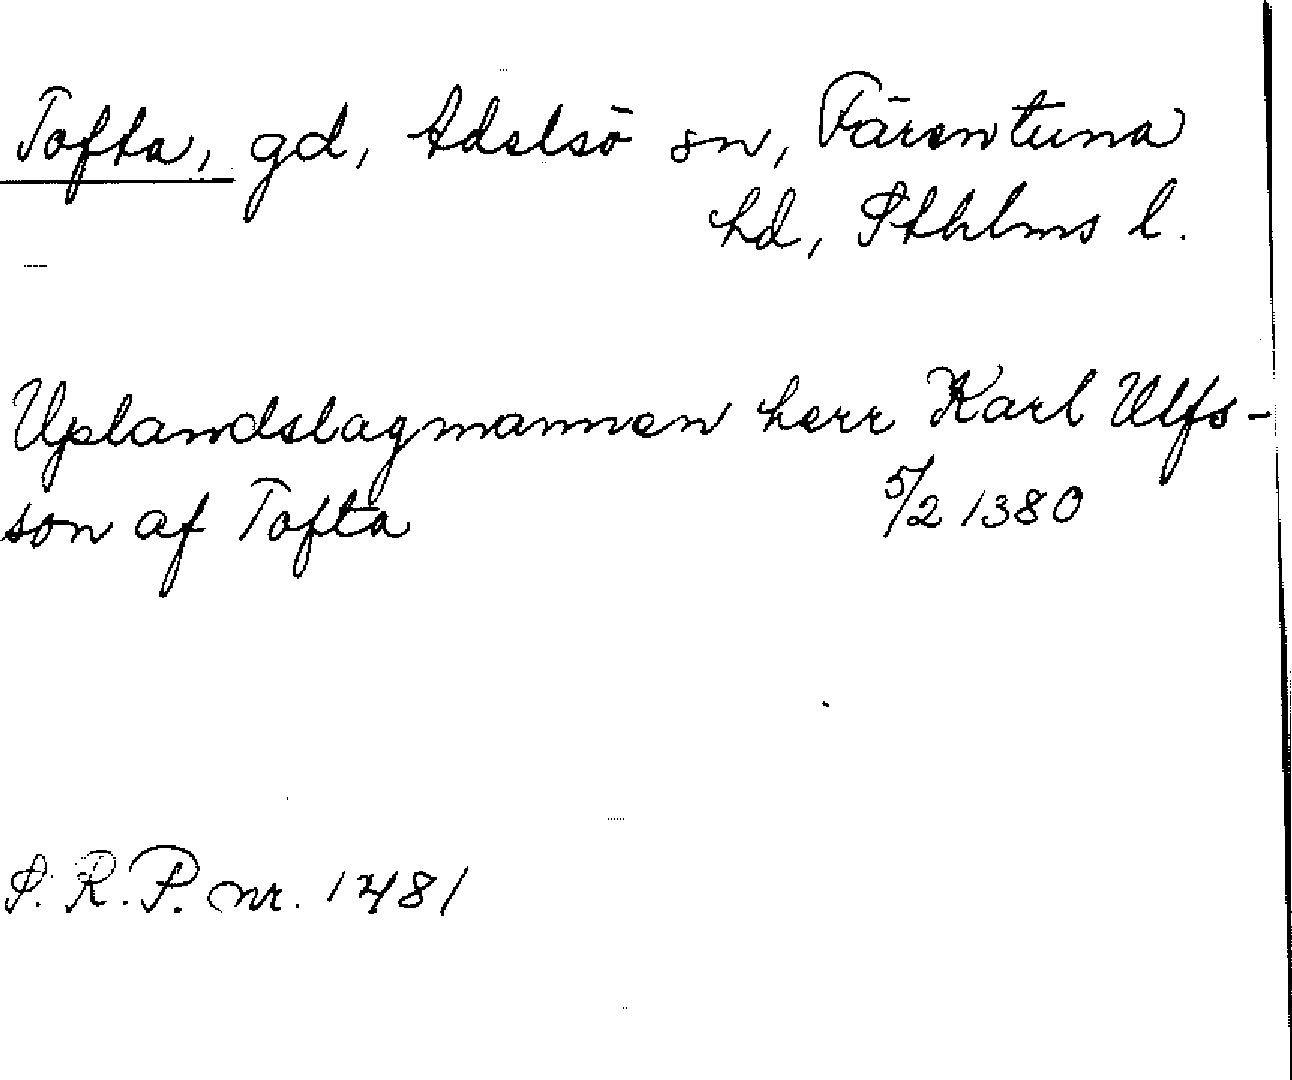 Tofta, gd, Adelsö sn, Färentuna
hd, Sthlms l.
Uplandslagmannen herr Karl Ulfs-
son af Tofta 5/2 1380
S. R. P. nr. 1481